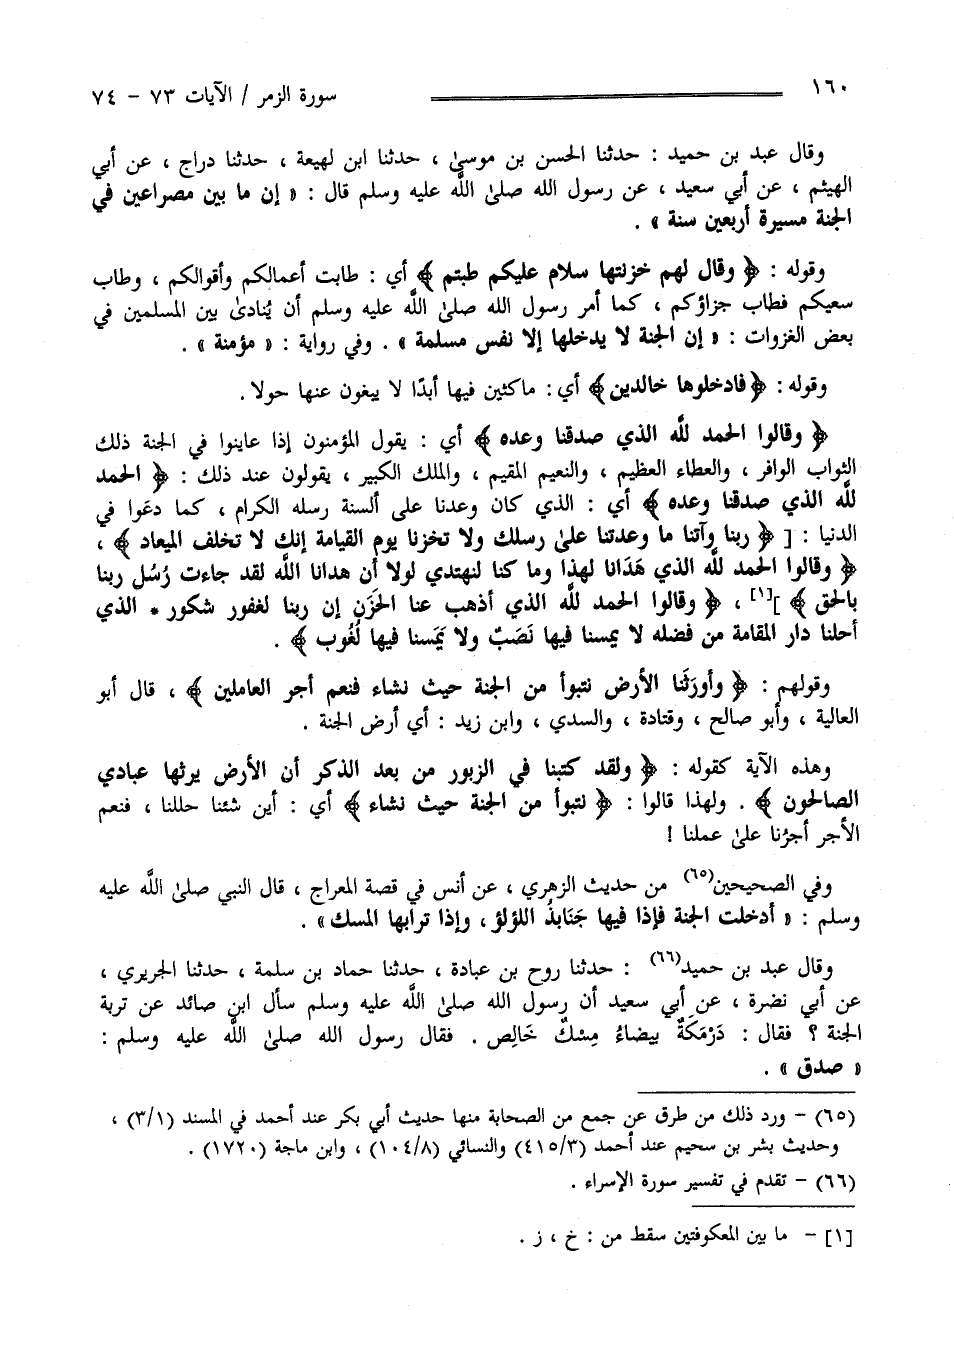 ١٦٠ سورة الزمر / الآيات ٧٣ - ٧٤
وقال عبد بن حميد : حدثنا الحسن بن موسىٰ ، حدثنا ابن لهيعة ، حدثنا دراج ، عن أبي
الهيثم ، عن أبي سعيد ، عن رسول الله صلىٰ اللَّه عليه وسلم قال : « إن ما بين مصراعين في
الجنة مسيرة أربعين سنة » .
وقوله : ﴿ وقال لهم خزنتها سلام عليكم طبتم ﴾ أي : طابت أعمالكم وأقوالكم ، وطاب
سعيكم فطاب جزاؤكم ، كما أمر رسول الله صلىٰ اللَّه عليه وسلم أن يُنادىٰ بين المسلمين في
بعض الغزوات : « إن الجنة لا يدخلها إلا نفس مسلمة » . وفي رواية : « مؤمنة » .
وقوله : ﴿فادخلوها خالدين﴾ أي : ماكثين فيها أبدًا لا يبغون عنها حولا .
﴿ وقالوا الحمد للَّه الذي صدقنا وعده ﴾ أي : يقول المؤمنون إذا عاينوا في الجنة ذلك
الثواب الوافر ، والعطاء العظيم ، والنعيم المقيم ، والملك الكبير ، يقولون عند ذلك : ﴿ الحمد
للَّه الذي صدقنا وعده ﴾ أي : الذي كان وعدنا على ألسنة رسله الكرام ، كما دعَوا في
الدنيا : [ ﴿ ربنا وآتنا ما وعدتنا علىٰ رسلك ولا تخزنا يوم القيامة إنك لا تخلف الميعاد ﴾ ،
﴿ وقالوا الحمد للَّه الذي هَدَانا لهذا وما كنا لنهتدي لولا أن هدانا اللَّه لقد جاءت رُسُل ربنا
بالحق ﴾ ][١] ، ﴿ وقالوا الحمد للَّه الذي أذهب عنا الحَزَن إن ربنا لغفور شكور * الذي
أحلنا دار المقامة من فضله لا يمسنا فيها نَصَبٌ ولا يَمَسنا فيها لُغُوب ﴾ .
وقولهم : ﴿ وأورَثَنا الأرض نتبوأ من الجنة حيث نشاء فنعم أجر العاملين ﴾ ، قال أبو
العالية ، وأبو صالح ، وقتادة ، والسدي ، وابن زيد : أي أرض الجنة .
وهذه الآية كقوله : ﴿ ولقد كتبنا في الزبور من بعد الذكر أن الأرض يرثها عبادي
الصالحون ﴾ . ولهذا قالوا : ﴿ نتبوأ من الجنة حيث نشاء ﴾ أي : أين شئنا حللنا ، فنعم
الأجر أجرُنا علىٰ عملنا !
وفي الصحيحين(٦٥) من حديث الزهري ، عن أنس في قصة المعراج ، قال النبي صلىٰ اللَّه عليه
وسلم : « أدخلت الجنة فإذا فيها جَنَابذُ اللؤلؤ ، وإذا ترابها المسك » .
وقال عبد بن حميد(٦٦) : حدثنا روح بن عبادة ، حدثنا حماد بن سلمة ، حدثنا الجريري ،
عن أبي نضرة ، عن أبي سعيد أن رسول الله صلىٰ اللَّه عليه وسلم سأل ابن صائد عن تربة
الجنة ؟ فقال : دَرْمَكَةٌ بيضاءُ مِسْكٌ خَالِص . فقال رسول الله صلىٰ اللَّه عليه وسلم :
« صدق » .
(٦٥) - ورد ذلك من طرق عن جمع من الصحابة منها حديث أبي بكر عند أحمد في المسند (٣/١) ،
وحديث بشر بن سحيم عند أحمد (٤١٥/٣) والنسائي (١٠٤/٨) ، وابن ماجة (١٧٢٠) .
(٦٦) - تقدم في تفسير سورة الإسراء .
[١] - ما بين المعكوفتين سقط من : خ ، ز .